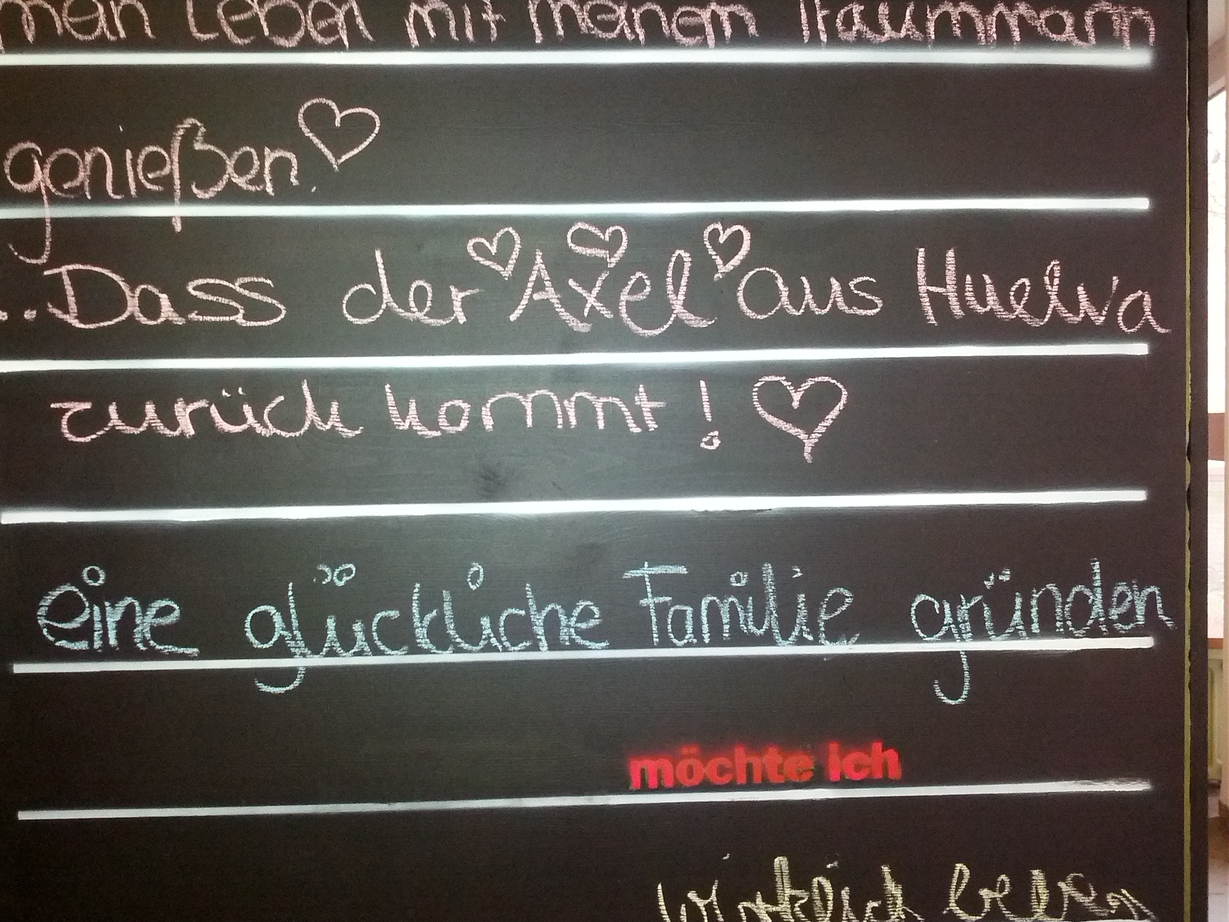 mein Leben mit meinem Traummann
genießen.♡
...Dass der ♡Axel♡ aus Huelva
zurück kommt! ♡
eine glückliche Familie gründen
möchte ich
wirklich leben